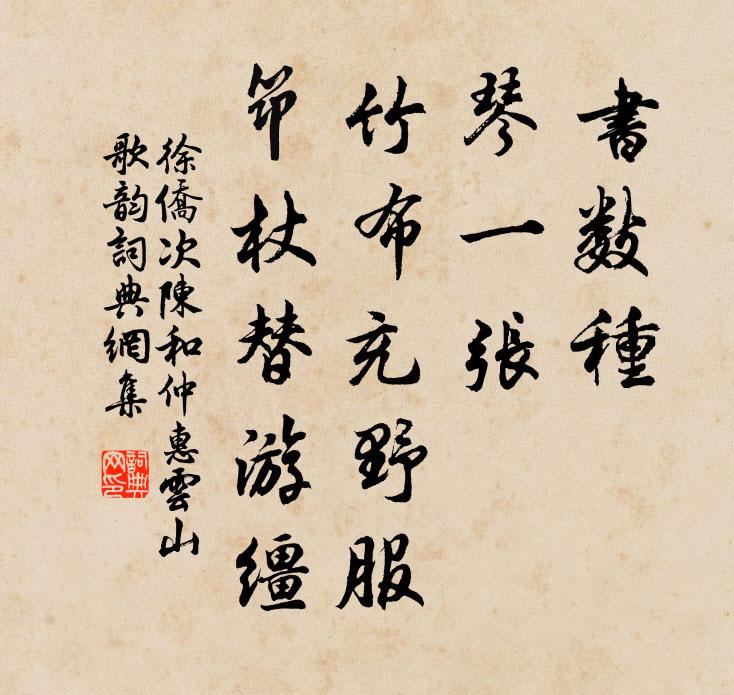 書數種
琴一張
竹布充野服
筇杖替游繮
徐僑次陳和仲惠雲山
歌韵詞典網集
詞典网印